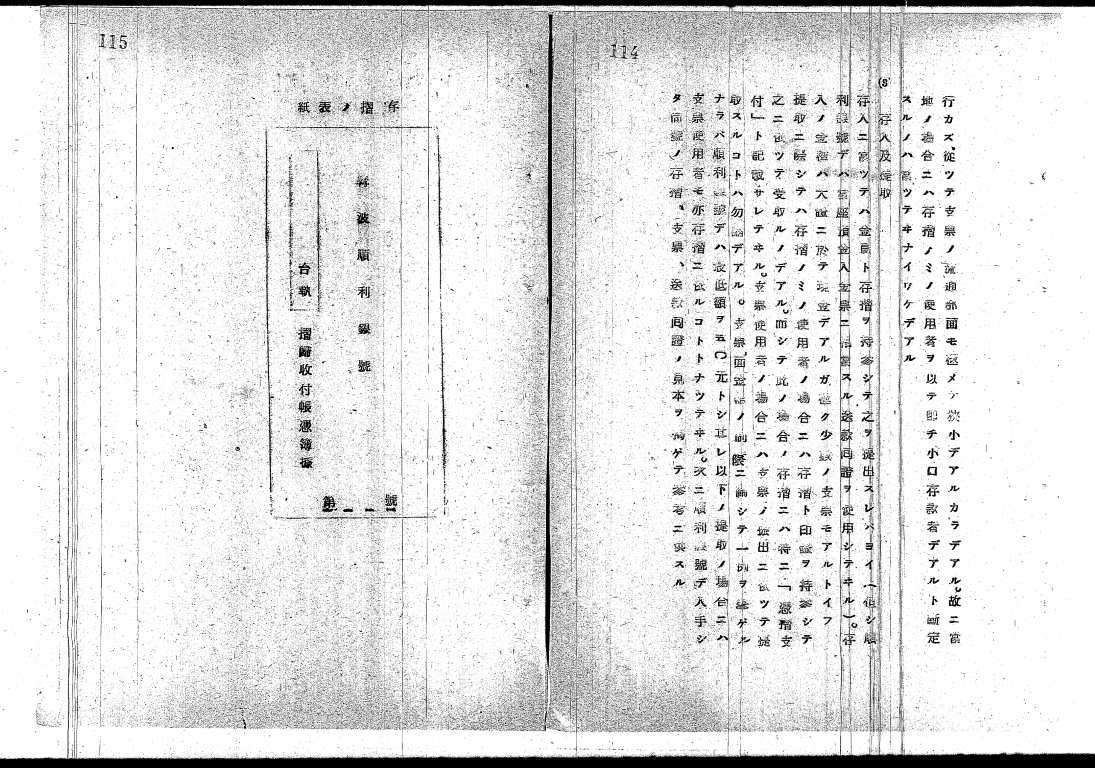 114
行カズ、從ツテ支票ノ流通範圍モ極メテ狹小デアルカラデアル。故ニ當
地ノ場合ニハ存摺ノミノ使用者ヲ以テ卽チ小口存款者デアルト斷定
スルノハ當ツテヰナイワケデアル
(3) 存入及提取
存入ニ當ツテハ金員ト存摺ヲ持參シテ之ヲ提出スレバヨイ(但シ順
利銀號デハ 入金票ニ スル送款回證ヲ使用シテヰル)。存
入ノ金種ハ大體ニ於テ現金デアルガ 少數ノ支票モアルトイフ
提取ニ際シテハ存摺ノミノ使用者ノ場合ニハ存摺ト印鑑ヲ持參シテ
之ニ依ツテ受取ルノデアル。而シテ此ノ場合ノ存摺ニハ特ニ「憑摺支
付」ト記載サレテヰル。支票使用者ノ場合ニハ支票ノ振出ニ依ツテ提
取スルコトハ勿論デアル。支票面金額ノ制限ニ關シテ一例ヲ擧ゲル
ナラバ順利銀號デハ最低額ヲ五〇元トシ其レ以下ノ提取ノ場合ニハ
支票使用者モ亦存摺ニ依ルコトトナツテヰル。次ニ順利銀號デ入手シ
タ同號ノ存摺、支票、送款回證ノ見本ヲ揭ゲテ參考ニ供スル
115
存摺ノ表紙
號
第
寧波順利銀號
台執
摺歸收付帳憑簿據